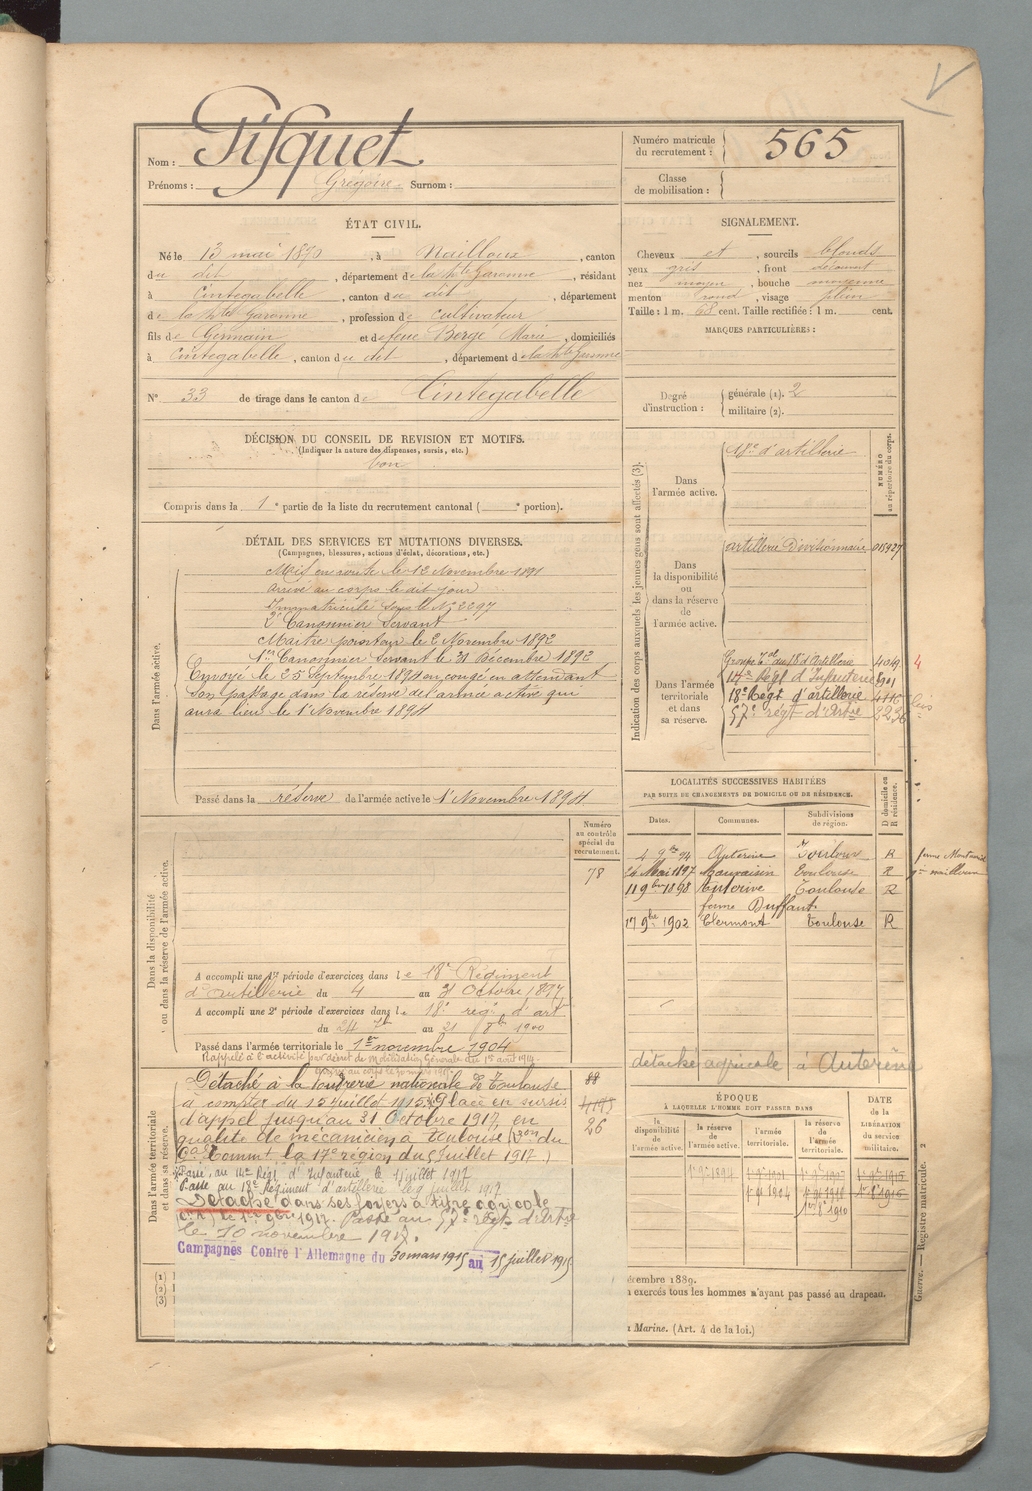 Nom : Pisquet
Prénoms : Grégoire Surnom :
Numéro matricule du recrutement : 565
Classe de mobilisation :
ÉTAT CIVIL.
Né le 13 mai 1870, à Nailloux, canton
du dit, département de la Hte Garonne, résidant
à Cintegabelle, canton du dit, département
de la Hte Garonne, profession de cultivateur
fils de Germain et de feue Bergé Marie, domiciliés
à Cintegabelle, canton du dit, département de la Hte Garonne
No 33 de tirage dans le canton de Cintegabelle
SIGNALEMENT.
Cheveux et, sourcils blonds
yeux gris, front
nez moyen, bouche moyenne
menton rond, visage plein
Taille : 1 m. 68 cent. Taille rectifiée : 1 m. cent.
MARQUES PARTICULIÈRES :
Degré d'instruction : générale (1). 2
militaire (2).
DÉCISION DU CONSEIL DE REVISION ET MOTIFS.
(Indiquer la nature des dispenses, sursis, etc.)
bon
Compris dans la 1e partie de la liste du recrutement cantonal ( e portion).
DÉTAIL DES SERVICES ET MUTATIONS DIVERSES.
(Campagnes, blessures, actions d'éclat, décorations, etc.)
Dans l'armée active.
Mis en route le 12 Novembre 1891
arrivé au corps le dit jour
Immatriculé sous le No 2297
2e Canonnier Servant
Maitre pointeur le 2 Novembre 1892
1er Canonnier Servant le 31 Décembre 1892
Envoyé le 25 Septembre 1894 en congé en attendant
son passage dans la réserve de l'armée active qui
aura lieu le 1 Novembre 1894
Passé dans la réserve de l'armée active le 1 Novembre 1894
Indication des corps auxquels les jeunes gens sont affectés (3).
NUMÉRO au répertoire du corps.
Dans l'armée active.
18e d'artillerie
Dans la disponibilité ou dans la réserve de l'armée active.
artillerie Divisionnaire
Dans l'armée territoriale et dans sa réserve.
Groupe Tal du 18e d'Artillerie 409 4
14e Régt d'Infanterie
18e Régt d'artillerie
57e régt d'Artie
LOCALITÉS SUCCESSIVES HABITÉES
PAR SUITE DE CHANGEMENTS DE DOMICILE OU DE RÉSIDENCE.
Dates. Communes. Subdivisions de région. D domicile ou R résidence.
4 9bre 94 Auterive Toulouse R
24 Mai 1897 Mauvaisin Toulouse R
11 9bre 1898 Auterive Toulouse R
ferme Duffaut
17 9bre 1902 Clermont Toulouse R
détaché agricole à Auterive
Numéro au contrôle spécial du recrutement.
78
Dans la disponibilité ou dans la réserve de l'armée active.
A accompli une 1re période d'exercices dans le 18e Régiment
d'artillerie du 4 au 31 Octobre 1897
A accompli une 2e période d'exercices dans le 18e régt d'art
du 24 7bre au 21 8bre 1900
Passé dans l'armée territoriale le 1er novembre 1904
Rappelé à l'activité par décret de mobilisation Générale du 1er août 1914.
Arrivé au corps le 30 mars 1915.
Dans l'armée territoriale et dans sa réserve.
Détaché à la Poudrerie nationale de Toulouse
à compter du 15 juillet 1915. Placé en sursis
d'appel jusqu'au 31 Octobre 1917, en
qualité de mécanicien à Toulouse (Don du
Gal Commt la 17e région du 5 juillet 1917.)
Passé au 14e Régt d'Infanterie le 1 juillet 1917
Passé au 18e Régiment d'artillerie le 9 juillet 1917
Détaché dans ses foyers à titre agricole
le 1er 9bre 1917. Passé au 57e régt d'Artie
le 10 novembre 1917.
Campagnes Contre l'Allemagne du 30 mars 1915 au 15 juillet 1915
88
26
ÉPOQUE
À LAQUELLE L'HOMME DOIT PASSER DANS
la disponibilité de l'armée active. la réserve de l'armée active. l'armée territoriale. la réserve de l'armée territoriale.
DATE de la LIBÉRATION du service militaire.
1er 9bre 1894
(1)
(2)
(3)
décembre 1889.
exercés tous les hommes n'ayant pas passé au drapeau.
Marine. (Art. 4 de la loi.)
Guerre. — Registre matricule. 2